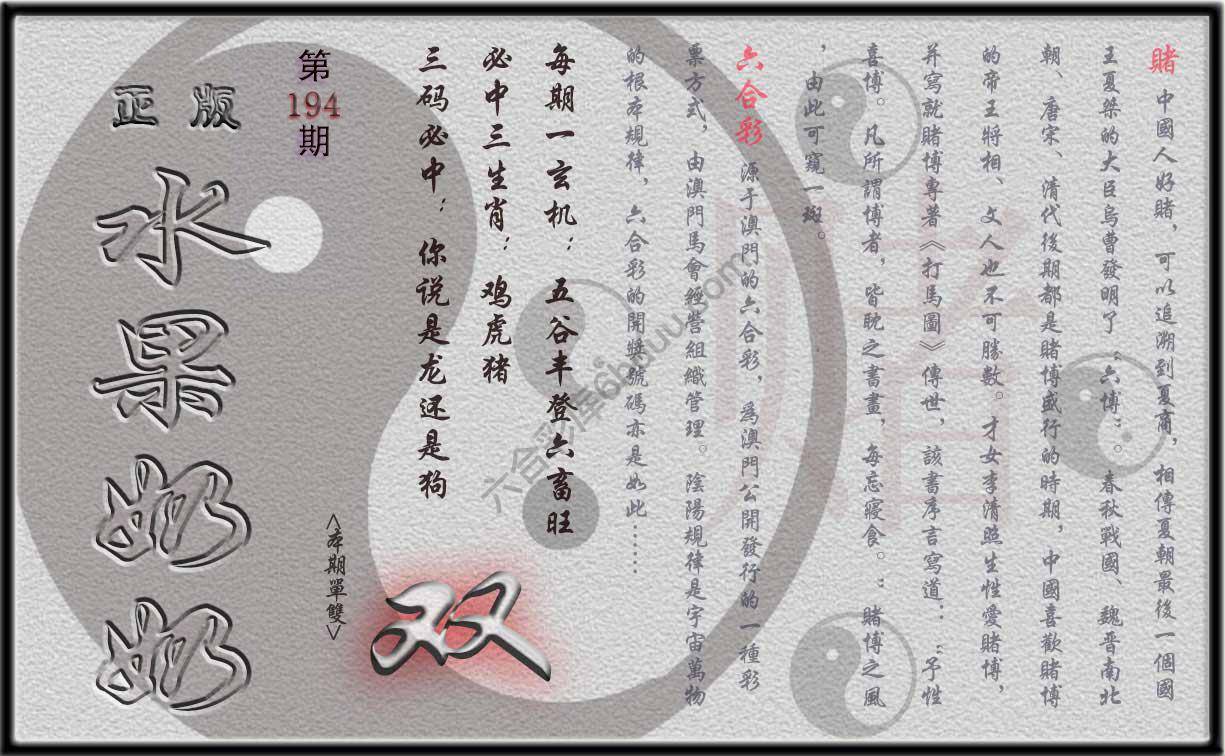 賭 中國人好賭，可以追溯到夏商，相傳夏朝最後一個國
王夏桀的大臣烏曹發明了“六博”。春秋戰國、魏晋南北
朝、唐宋、清代後期都是賭博盛行的時期，中國喜歡賭博
的帝王將相、文人也不可勝數。才女李清照生性愛賭博，
并寫就賭博專著《打馬圖》傳世，該書序言寫道：“予性
喜博。凡所謂博者，皆耽之書畫，每忘寢食。”賭博之風
，由此可窺一斑。
六合彩 源于澳門的六合彩，爲澳門公開發行的一種彩
票方式，由澳門馬會經營組織管理。陰陽規律是宇宙萬物
的根本規律，六合彩的開獎號碼亦是如此……
每期一玄机：五谷丰登六畜旺
必中三生肖：鸡虎猪
三码必中：你说是龙还是狗
双
<本期單雙>
第
194
期
正版
水果奶奶
賭
六合彩库6huuu.com